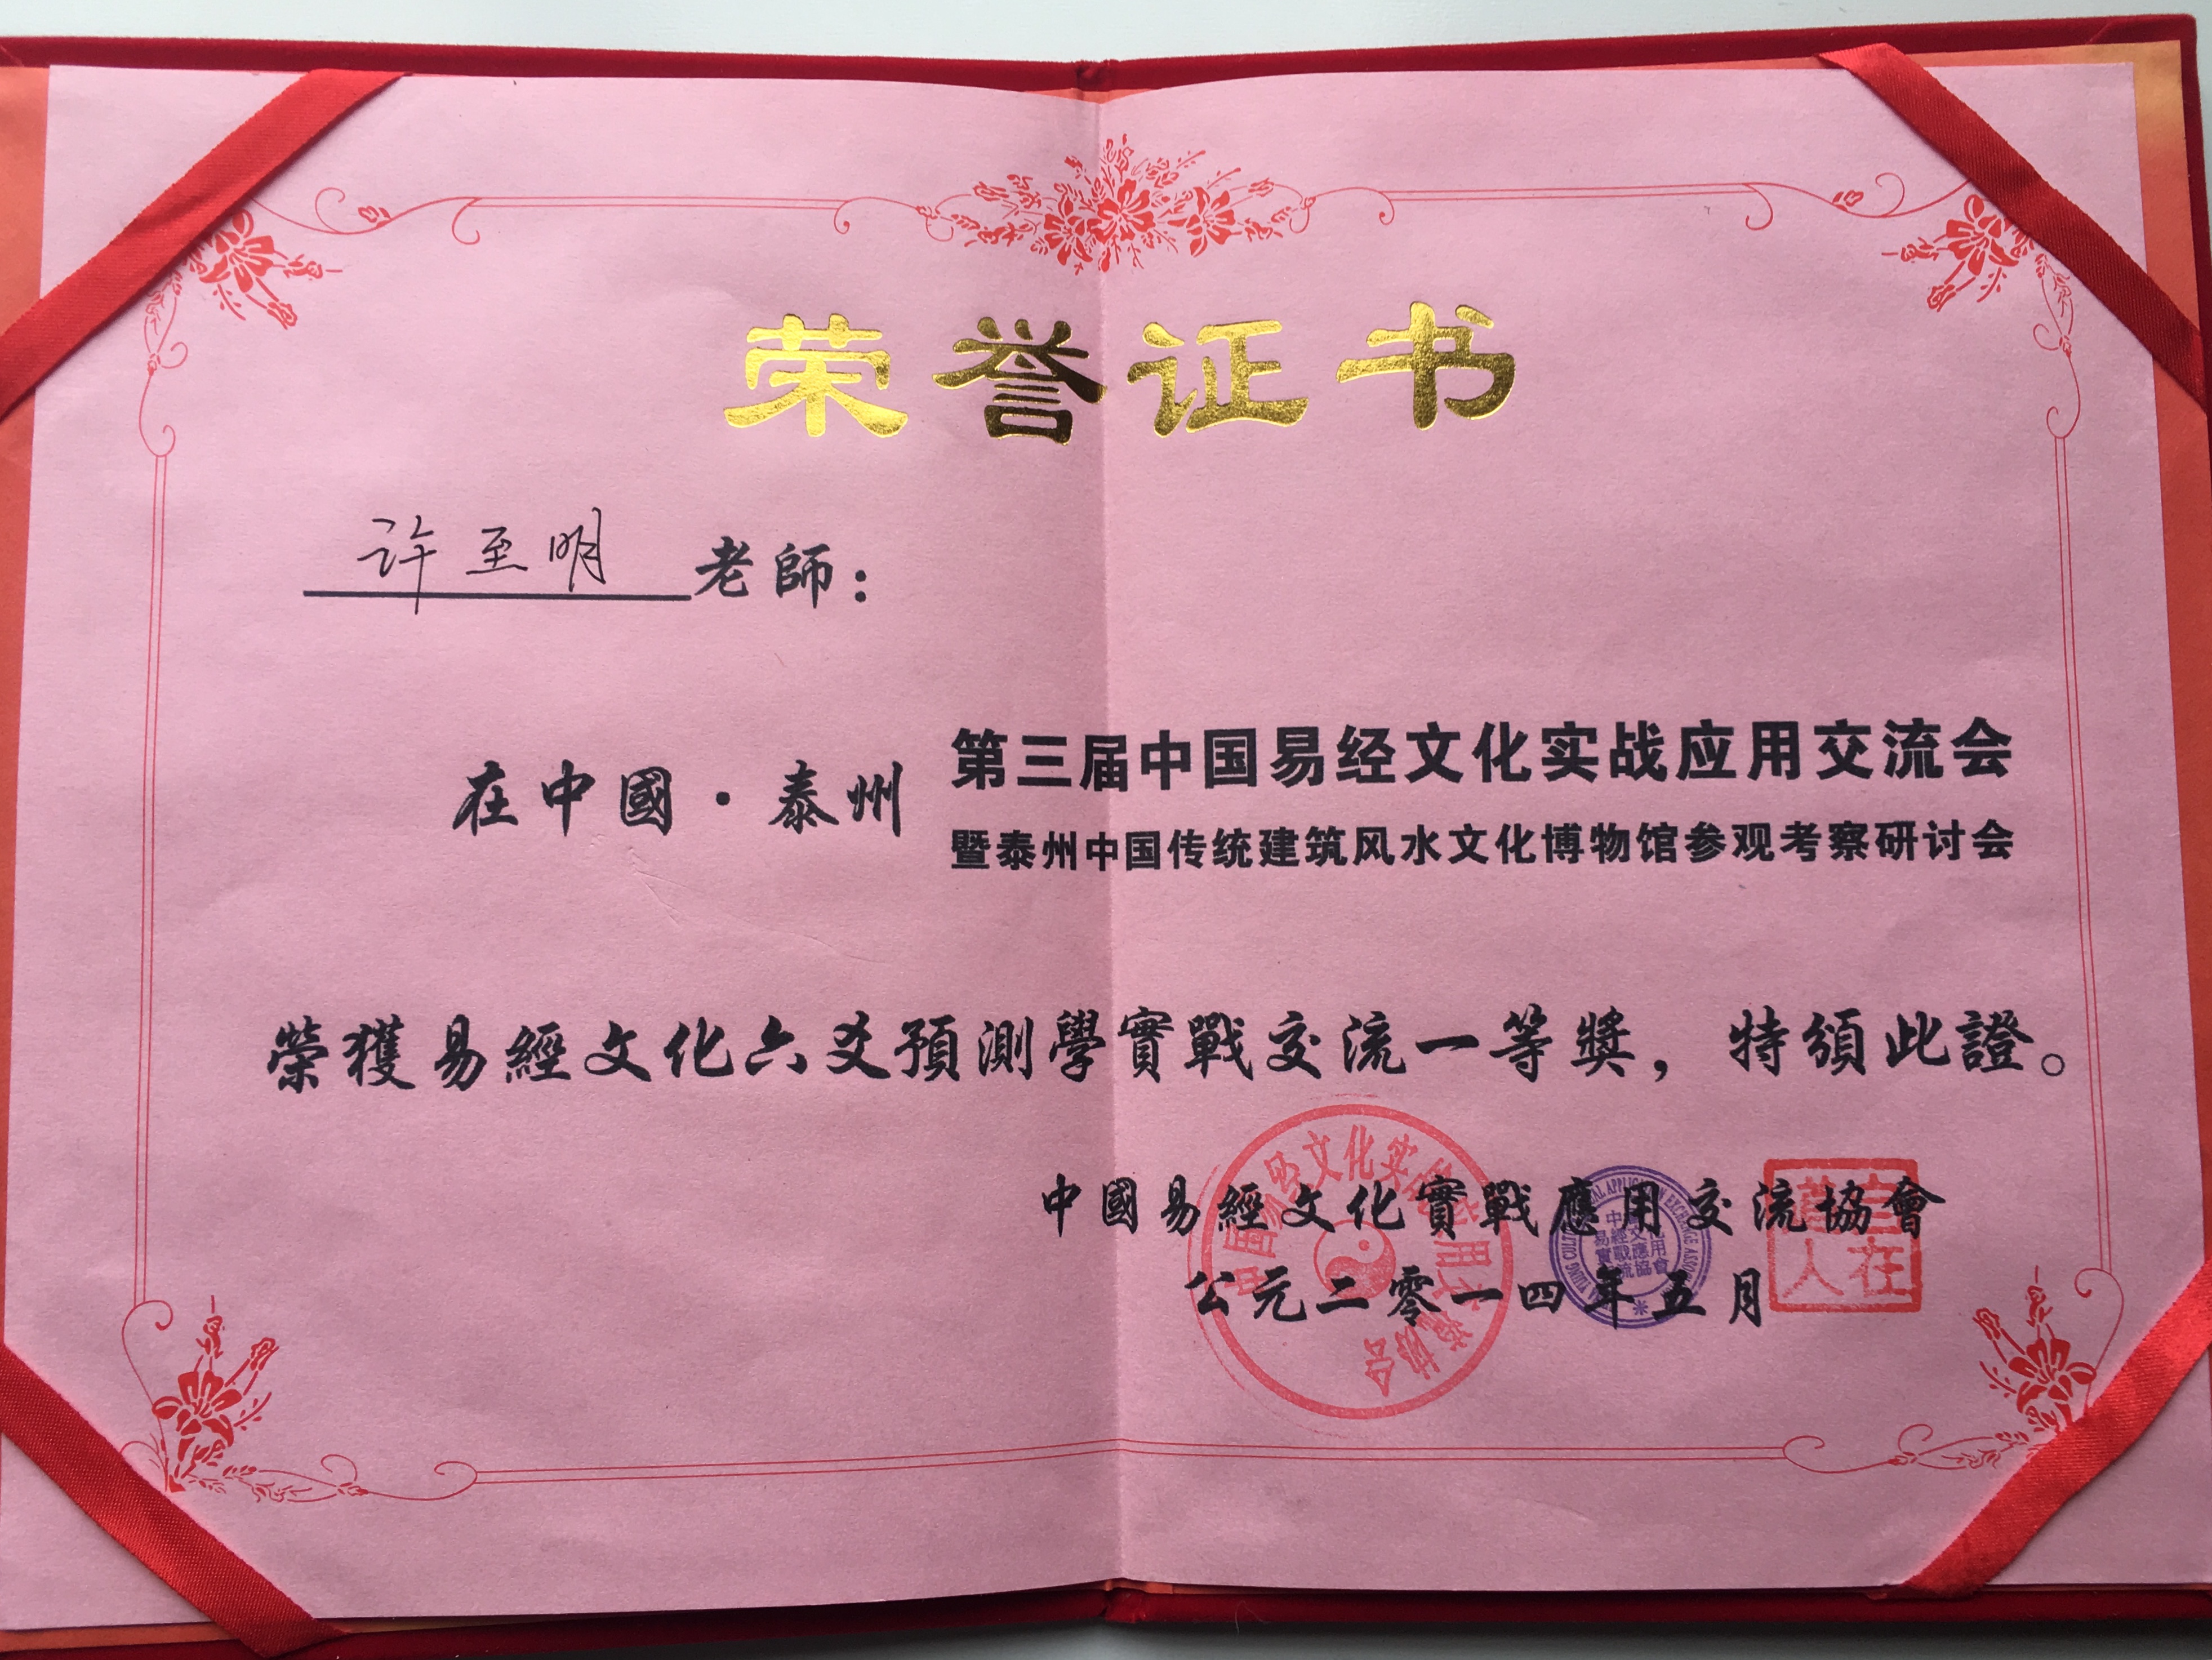 荣誉证书
许至明老師：
在中國·泰州
第三届中国易经文化实战应用交流会
暨泰州中国传统建筑风水文化博物馆参观考察研讨会
榮獲易經文化六爻預測學實戰交流一等獎，特頒此證。
中國易經文化實戰應用交流協會
公元二零一四年五月
中國
易經文化
實戰應用
交流協會